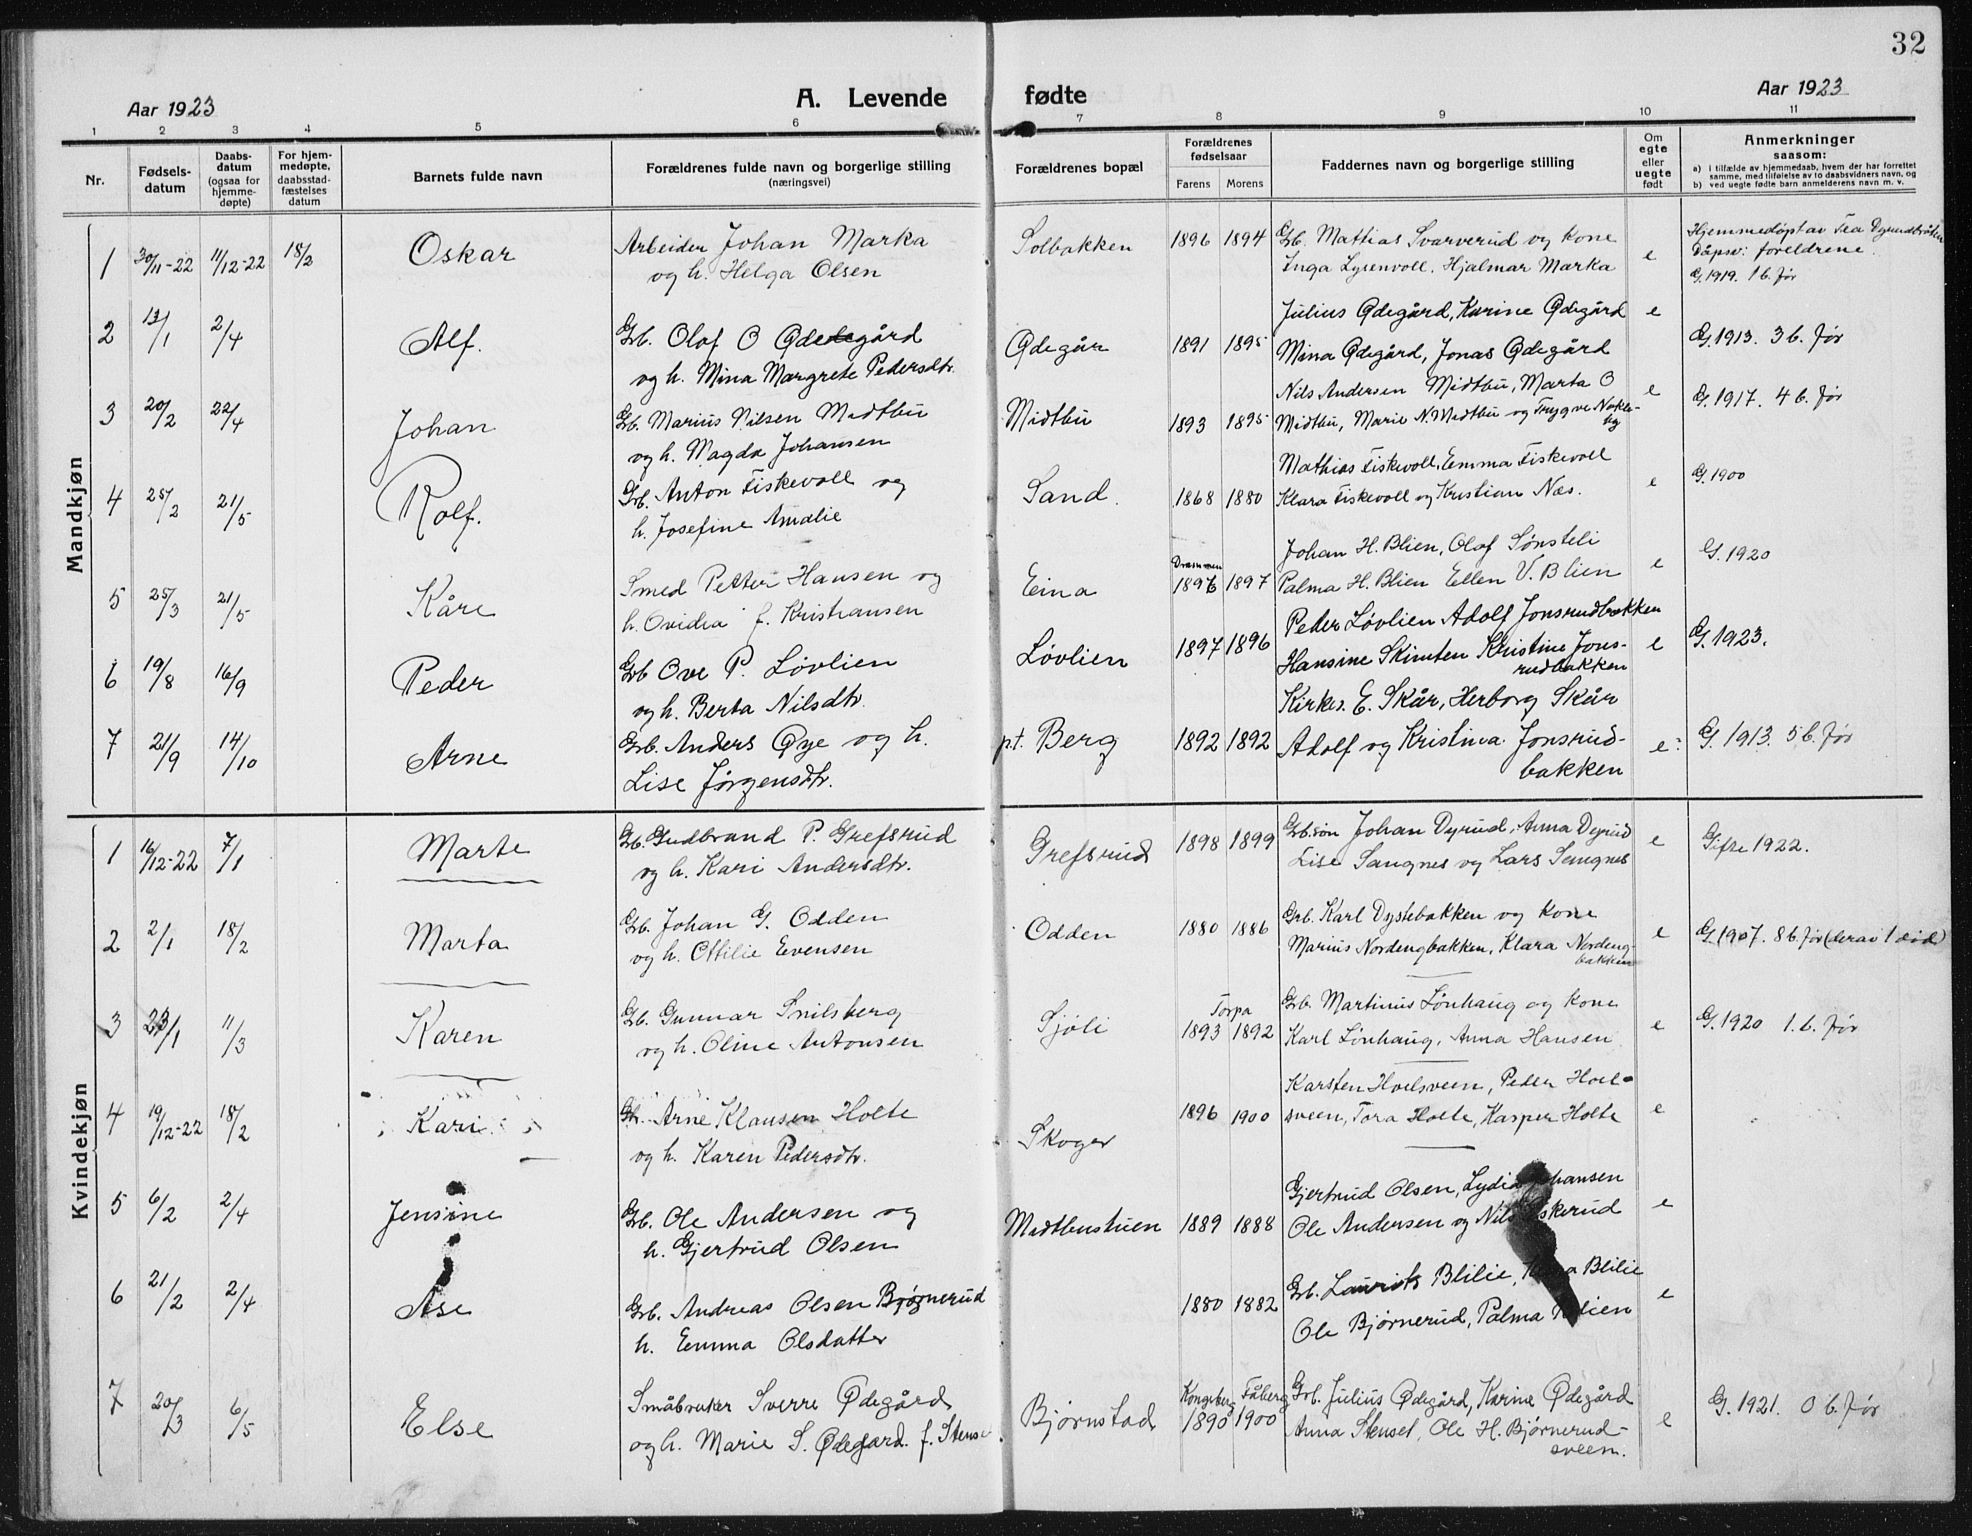 32
Aar 1923
A. Levende fødte
Aar 1923
1 2 3 4 5 6 7 8 9 10 11
Nr.
Fødsels-
datum
Daabs-
datum
(ogsaa for
hjemme-
døpte)
For hjem-
medøpte,
daabsstad-
fæstelses
datum
Barnets fulde navn
Forældrenes fulde navn og borgerlige stilling
(næringsvei)
Forældrenes bopæl
Forældrenes
fødselsaar
Farens Morens
Faddernes navn og borgerlige stilling
Om
egte
eller
uegte
født
Anmerkninger
saasom:
a) i tilfælde av hjemmedaab, hvem der har forrettet
samme, med tilføielse av to daabsvidners navn, og
b) ved uegte fødte barn anmelderens navn m. v.
Mandkjøn
1 30/11-22 11/12-22 18/2 Oskar
Arbeider Johan Marka
og h. Helga Olsen
Solbakken 1896 1894
Grb. Mathias Svarverud og kone
Inga Lysenvoll. Hjalmar Marka
e
Hjemmedøpt av Tea
Dåpsv: foreldrene.
G. 1919. 1 b. før
2 13/1 2/4 Alf.
Grb. Olaf O Ødegård
og h. Mina Margrete Pedersdtr.
Ødegår 1891 1895
Julius Ødegård, Karine Ødegård
Mina Ødegård, Jonas Ødegård
e
G. 1913. 3 b. før
3 20/2 22/4 Johan
Grb. Marius Nilsen Midtbu
og h. Magda Johansen
Midtbu 1893 1895
Nils Andersen Midtbu, Marta O
Midtbu, Marie N. Midtbu og Trygve Nokle-
by
e
G. 1917. 4 b. før
4 25/2 21/5 Rolf.
Grb. Anton Fiskevoll og
h. Josefine Amalie
Sand. 1868 1880
Mathias Fiskevoll, Emma Fiskevoll
Klara Fiskevoll og Kristian Næs.
e
G. 1900
5 25/3 21/5 Kåre
Smed Petter Hansen og
h. Ovidia f. Kristiansen
Eina
Drammen
1896 1897
Johan H. Blien, Olaf Sønsteli
Palma H. Blien Ellen V. Blien
e
G. 1920
6 19/8 16/9 Peder
Grb Ove P. Løvlien
og h. Berta Nilsdtr.
Løvlien 1897 1896
Peder Løvlien Adolf Jonsrudbakken
Hansine Skimten Kristine Jons-
rudbakken
e
G. 1923.
7 21/9 14/10 Arne
Grb. Anders Øye og h.
Lise Jørgensdtr.
p.t. Berg 1892 1892
Kirkes. E. Skår, Herborg Skår
Adolf og Kristina Jonsrud-
bakken
e
G. 1913. 5 b. før
Kvindekjøn
1 16/12-22 7/1 Marte
Grb. Gudbrand P. Grefsrud
og h. Kari Andersdtr.
Grefsrud 1898 1899
Grb.søn Johan Dyrud, Anna Dyrud
Lise Sangnes og Lars Sangnes
e
Gifte 1922.
2 2/1 18/2 Marta
Grb. Johan G. Odden
og h. Ottilie Evensen
Odden 1880 1886
Grb. Karl Dystebakken og kone
Marius Nordengbakken, Klara Nordeng-
bakken
e
G. 1907. 8 b. før (derav 1 død)
3 23/1 11/3 Karen
Grb. Gunnar Snilsberg
og h. Oline Antonsen
Sjøli
Torpa
1893 1892
Grb. Martinus Lønhaug og kone
Karl Lønhaug, Anna Hansen
e
G. 1920 1. b. før
4 19/12-22 18/2 Kari
Grb. Arne Klausen Holte
og h. Karen Pedersdtr.
Skoger 1896 1900
Karsten Hoelsveen, Peder Hoel-
sveen, Tora Holte, Kasper Holte
e
5 6/2 2/4 Jensine
Grb. Ole Andersen og
h. Gjertrud Olsen
Midtbustuen 1889 1888
Gjertrud Olsen, Lydia Johansen
Ole Andersen og Nils
e
6 21/2 2/4 Åse
Grb. Andreas Olsen Bjørnerud
h. Emma Olsdatter
1880 1882
Grb. Laurits Blilie, Blilie
Ole Bjørnerud, Palma
e
7 20/3 6/5 Else
Småbruker Sverre Ødegård
og h. Marie S. Ødegard. f. Stense
Bjørnstad
Kongsberg Fåberg
1890 1900
Grb. Julius Ødegård, Karine Ødegård
Anna Stenset, Ole H. Bjørnerud-
sveen.
e
G. 1921. 0 b. før